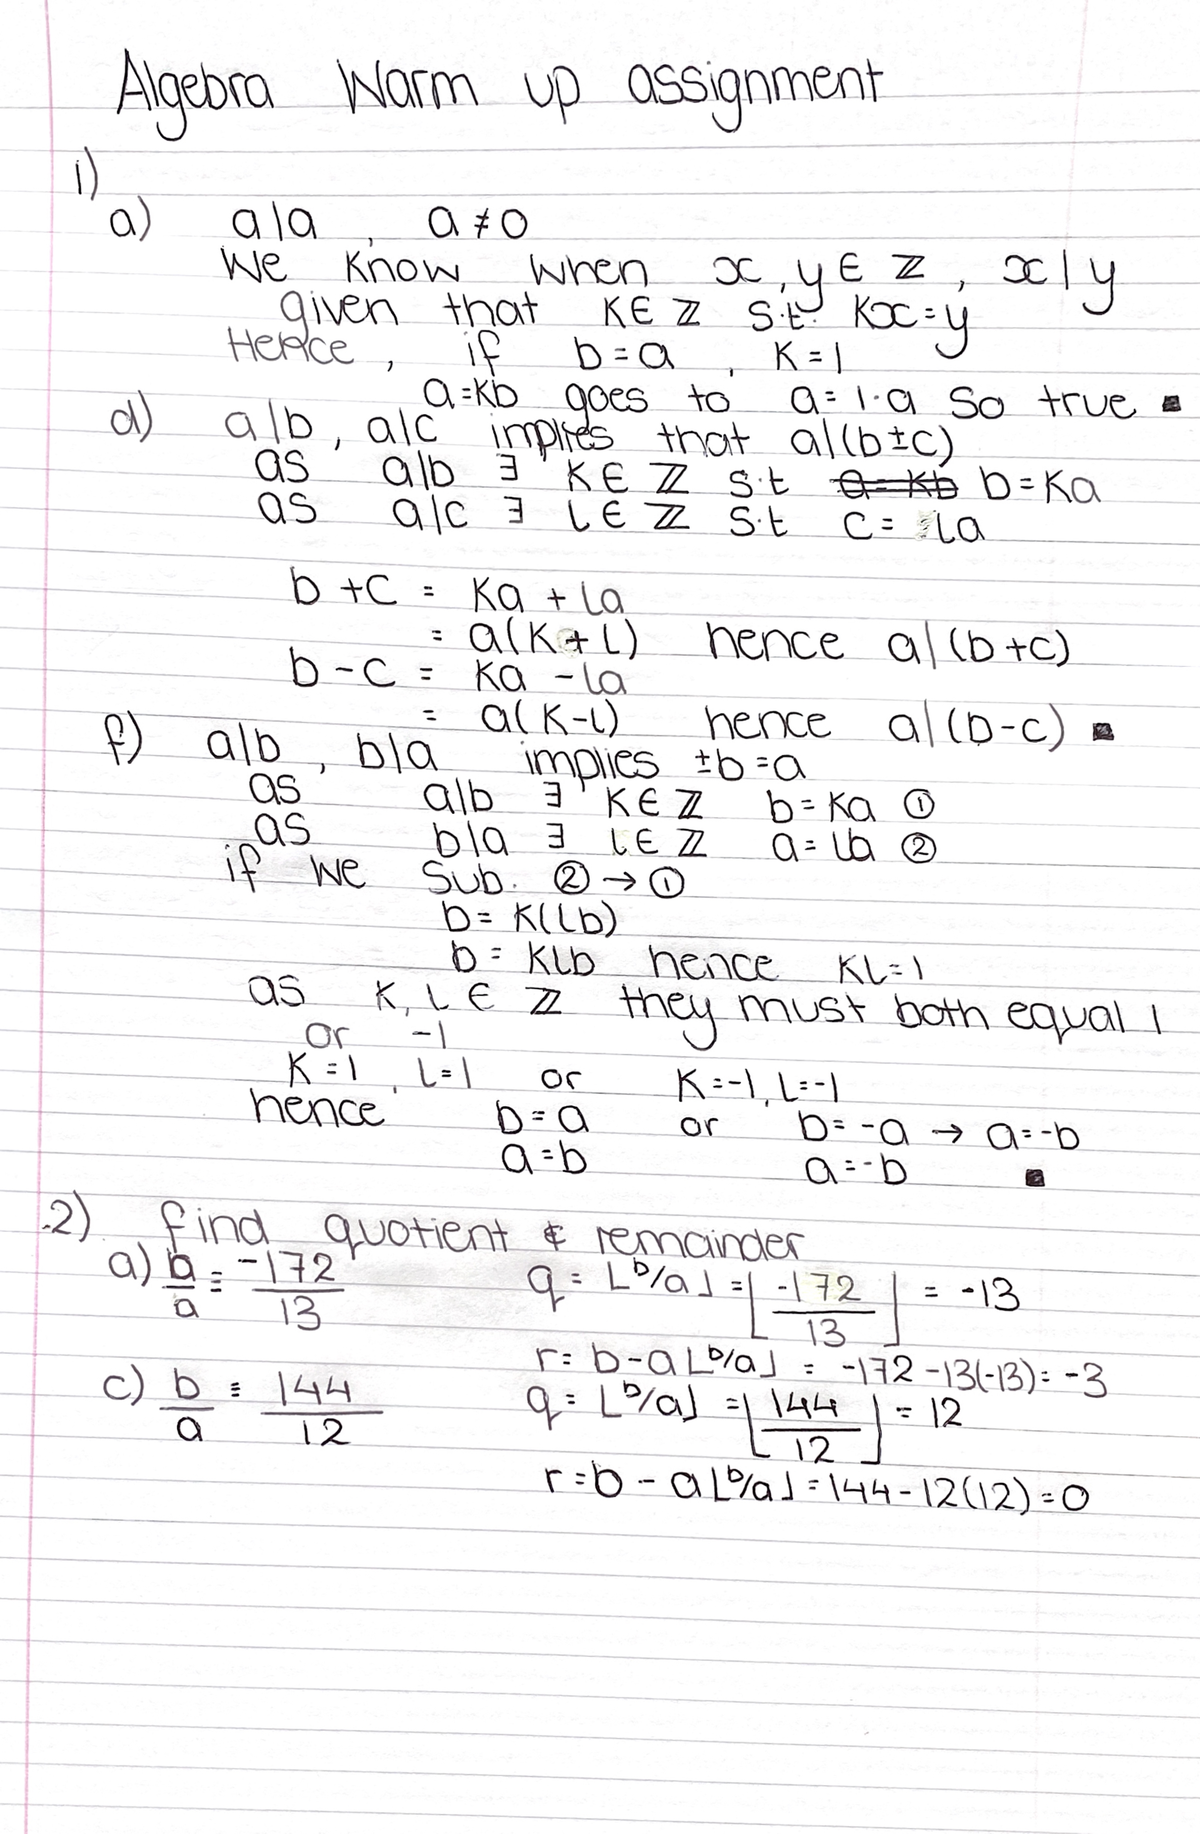 Algebra Warm up assignment
1)
a) a|a , a ≠ 0
We know when x, y ∈ ℤ , x|y
given that K ∈ ℤ s.t. Kx = y
Hence , if b = a , K = 1
a = Kb goes to a = 1·a So true ▪
d) a|b , a|c implies that a|(b±c)
as a|b ∃ K ∈ ℤ s.t a = Kb b = Ka
as a|c ∃ L ∈ ℤ s.t c = La
b + c = Ka + La
= a(K + L) hence a|(b + c)
b - c = Ka - La
= a(K - L) hence a|(b - c) ▪
f) a|b , b|a implies ±b = a
as a|b ∃ K ∈ ℤ b = Ka ①
as b|a ∃ L ∈ ℤ a = Lb ②
if we sub. ② → ①
b = K(Lb)
b = KLb hence KL = 1
as K, L ∈ ℤ they must both equal 1
or -1
K = 1 , L = 1 or K = -1, L = -1
hence b = a or b = -a → a = -b
a = b a = -b ▪
2) find quotient & remainder
a) b/a = -172/13 q = ⌊b/a⌋ = ⌊-172/13⌋ = -13
r = b - a⌊b/a⌋ = -172 - 13(-13) = -3
c) b/a = 144/12 q = ⌊b/a⌋ = ⌊144/12⌋ = 12
r = b - a⌊b/a⌋ = 144 - 12(12) = 0